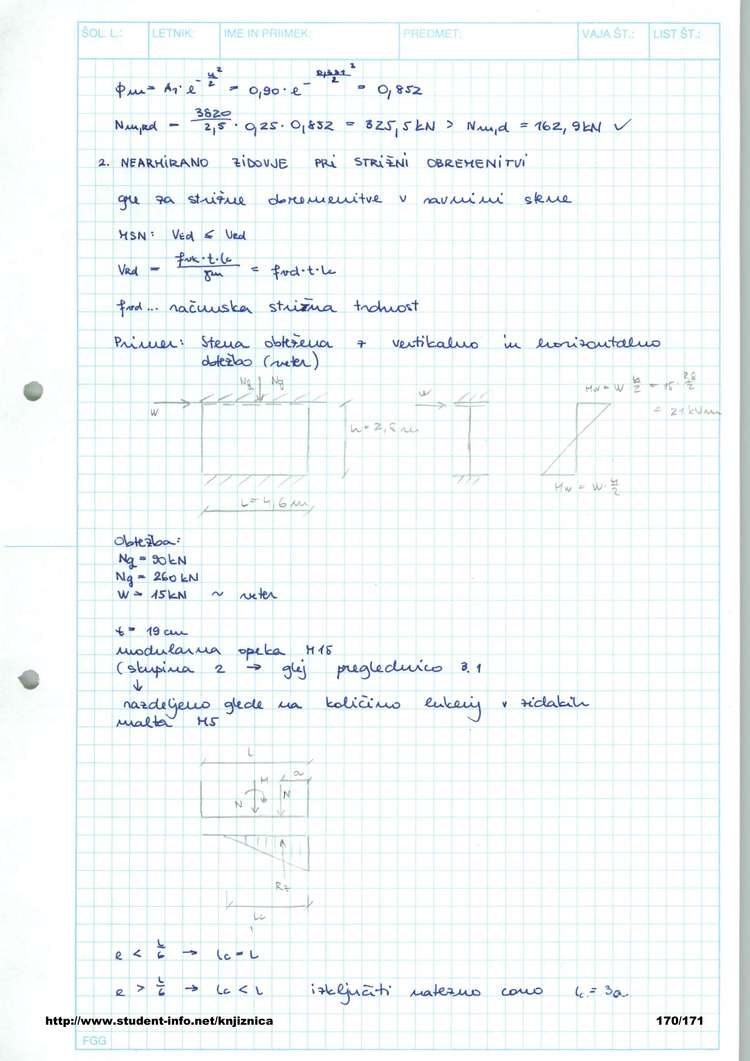 ŠOL. L.: LETNIK: IME IN PRIIMEK: PREDMET: VAJA ŠT.: LIST ŠT.:
ϕm = A1 · e^(-u²/2) = 0,90 · e = 0,852
Nm,Rd = 3820/2,5 · 0,25 · 0,852 = 325,5 kN > Nm,d = 162,9 kN ✓
2. NEARMIRANO ZIDOVJE PRI STRIŽNI OBREMENITVI
gre za strižne obremenitve v ravnini stene
MSN: VEd ≤ VRd
VRd = fvk·t·lc/γm = fvd·t·lc
fvd... računska strižna trdnost
Primer: Stena obtežena z vertikalno in horizontalno
obtežbo (veter)
Ng Nq
W
h = 2,8 m
L = 4,6 m
W
Mw = W h/2 = 15 · 2,8/2
= 21 kNm
Mw = W · h/2
Obtežba:
Nq = 90 kN
Ng = 260 kN
W = 15 kN ~ veter
t = 19 cm
modularna opeka M15
(skupina 2 → glej preglednico 3.1
↓
razdeljeno glede na količino lukenj v zidakih
malta M5
L
M a
N N
Rz
Lc
e < L/6 → Lc = L
e > L/6 → Lc < L izključiti natezno cono lc = 3a
http://www.student-info.net/knjiznica 170/171
FGG